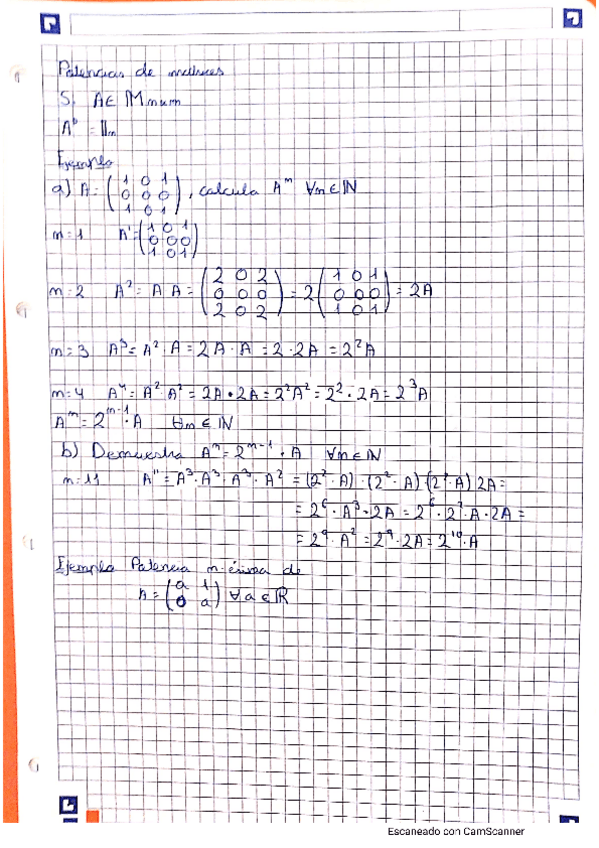 Potencias de matrices
Si A ∈ 𝕄nxn
A⁰ = 𝕀n
Ejemplo
a) A = (1 0 1 / 0 0 0 / 1 0 1), calcula Aⁿ ∀n ∈ ℕ
n=1 A¹ = (1 0 1 / 0 0 0 / 1 0 1)
n=2 A² = A A = (2 0 2 / 0 0 0 / 2 0 2) = 2 (1 0 1 / 0 0 0 / 1 0 1) = 2A
n=3 A³ = A² · A = 2A · A = 2 · 2A = 2²A
n=4 A⁴ = A² · A² = 2A · 2A = 2²A² = 2² · 2A = 2³A
Aⁿ = 2ⁿ⁻¹ · A ∀n ∈ ℕ
b) Demuestra Aⁿ = 2ⁿ⁻¹ · A ∀n ∈ ℕ
n=11 A¹¹ = A³ · A³ · A³ · A² = (2² · A) · (2² · A) · (2² · A) 2A =
= 2⁶ · A³ · 2A = 2⁶ · 2² · A · 2A =
= 2⁹ · A² = 2⁹ · 2A = 2¹⁰ · A
Ejemplo Potencia n-ésima de
A = (a 1 / 0 a) ∀a ∈ ℝ
Escaneado con CamScanner